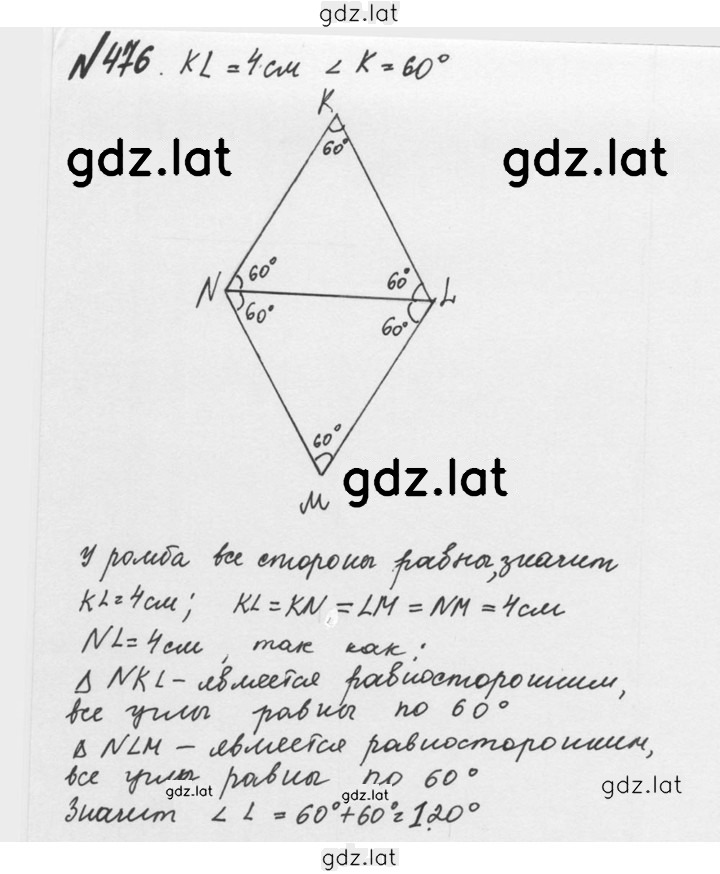 gdz.lat
№476. KL = 4 см ∠K = 60°
K
gdz.lat gdz.lat
60°
60° 60°
N L
60° 60°
60°
gdz.lat
M
У ромба все стороны равны, значит
KL = 4 см; KL = KN = LM = NM = 4 см
NL = 4 см, так как:
Δ NKL - является равносторонним,
все углы равны по 60°
Δ NLM - является равносторонним,
все углы равны по 60°
gdz.lat
gdz.lat gdz.lat
Значит ∠L = 60°+60°=120°
gdz.lat